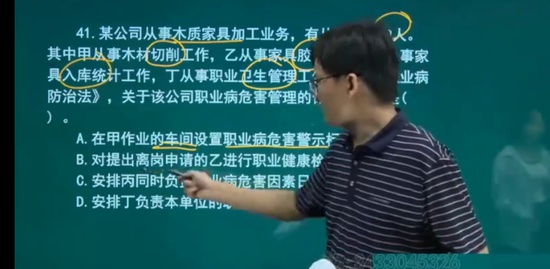 41. 某公司从事木质家具加工业务，有 人。
其中甲从事木材切削工作，乙从事家具胶 事家
具入库统计工作，丁从事职业卫生管理工 业病
防治法》，关于该公司职业病危害管理的 (
) 。
A. 在甲作业的车间设置职业病危害警示标
B. 对提出离岗申请的乙进行职业健康检
C. 安排丙同时负 病危害因素日
D. 安排丁负责本单位的
33045326